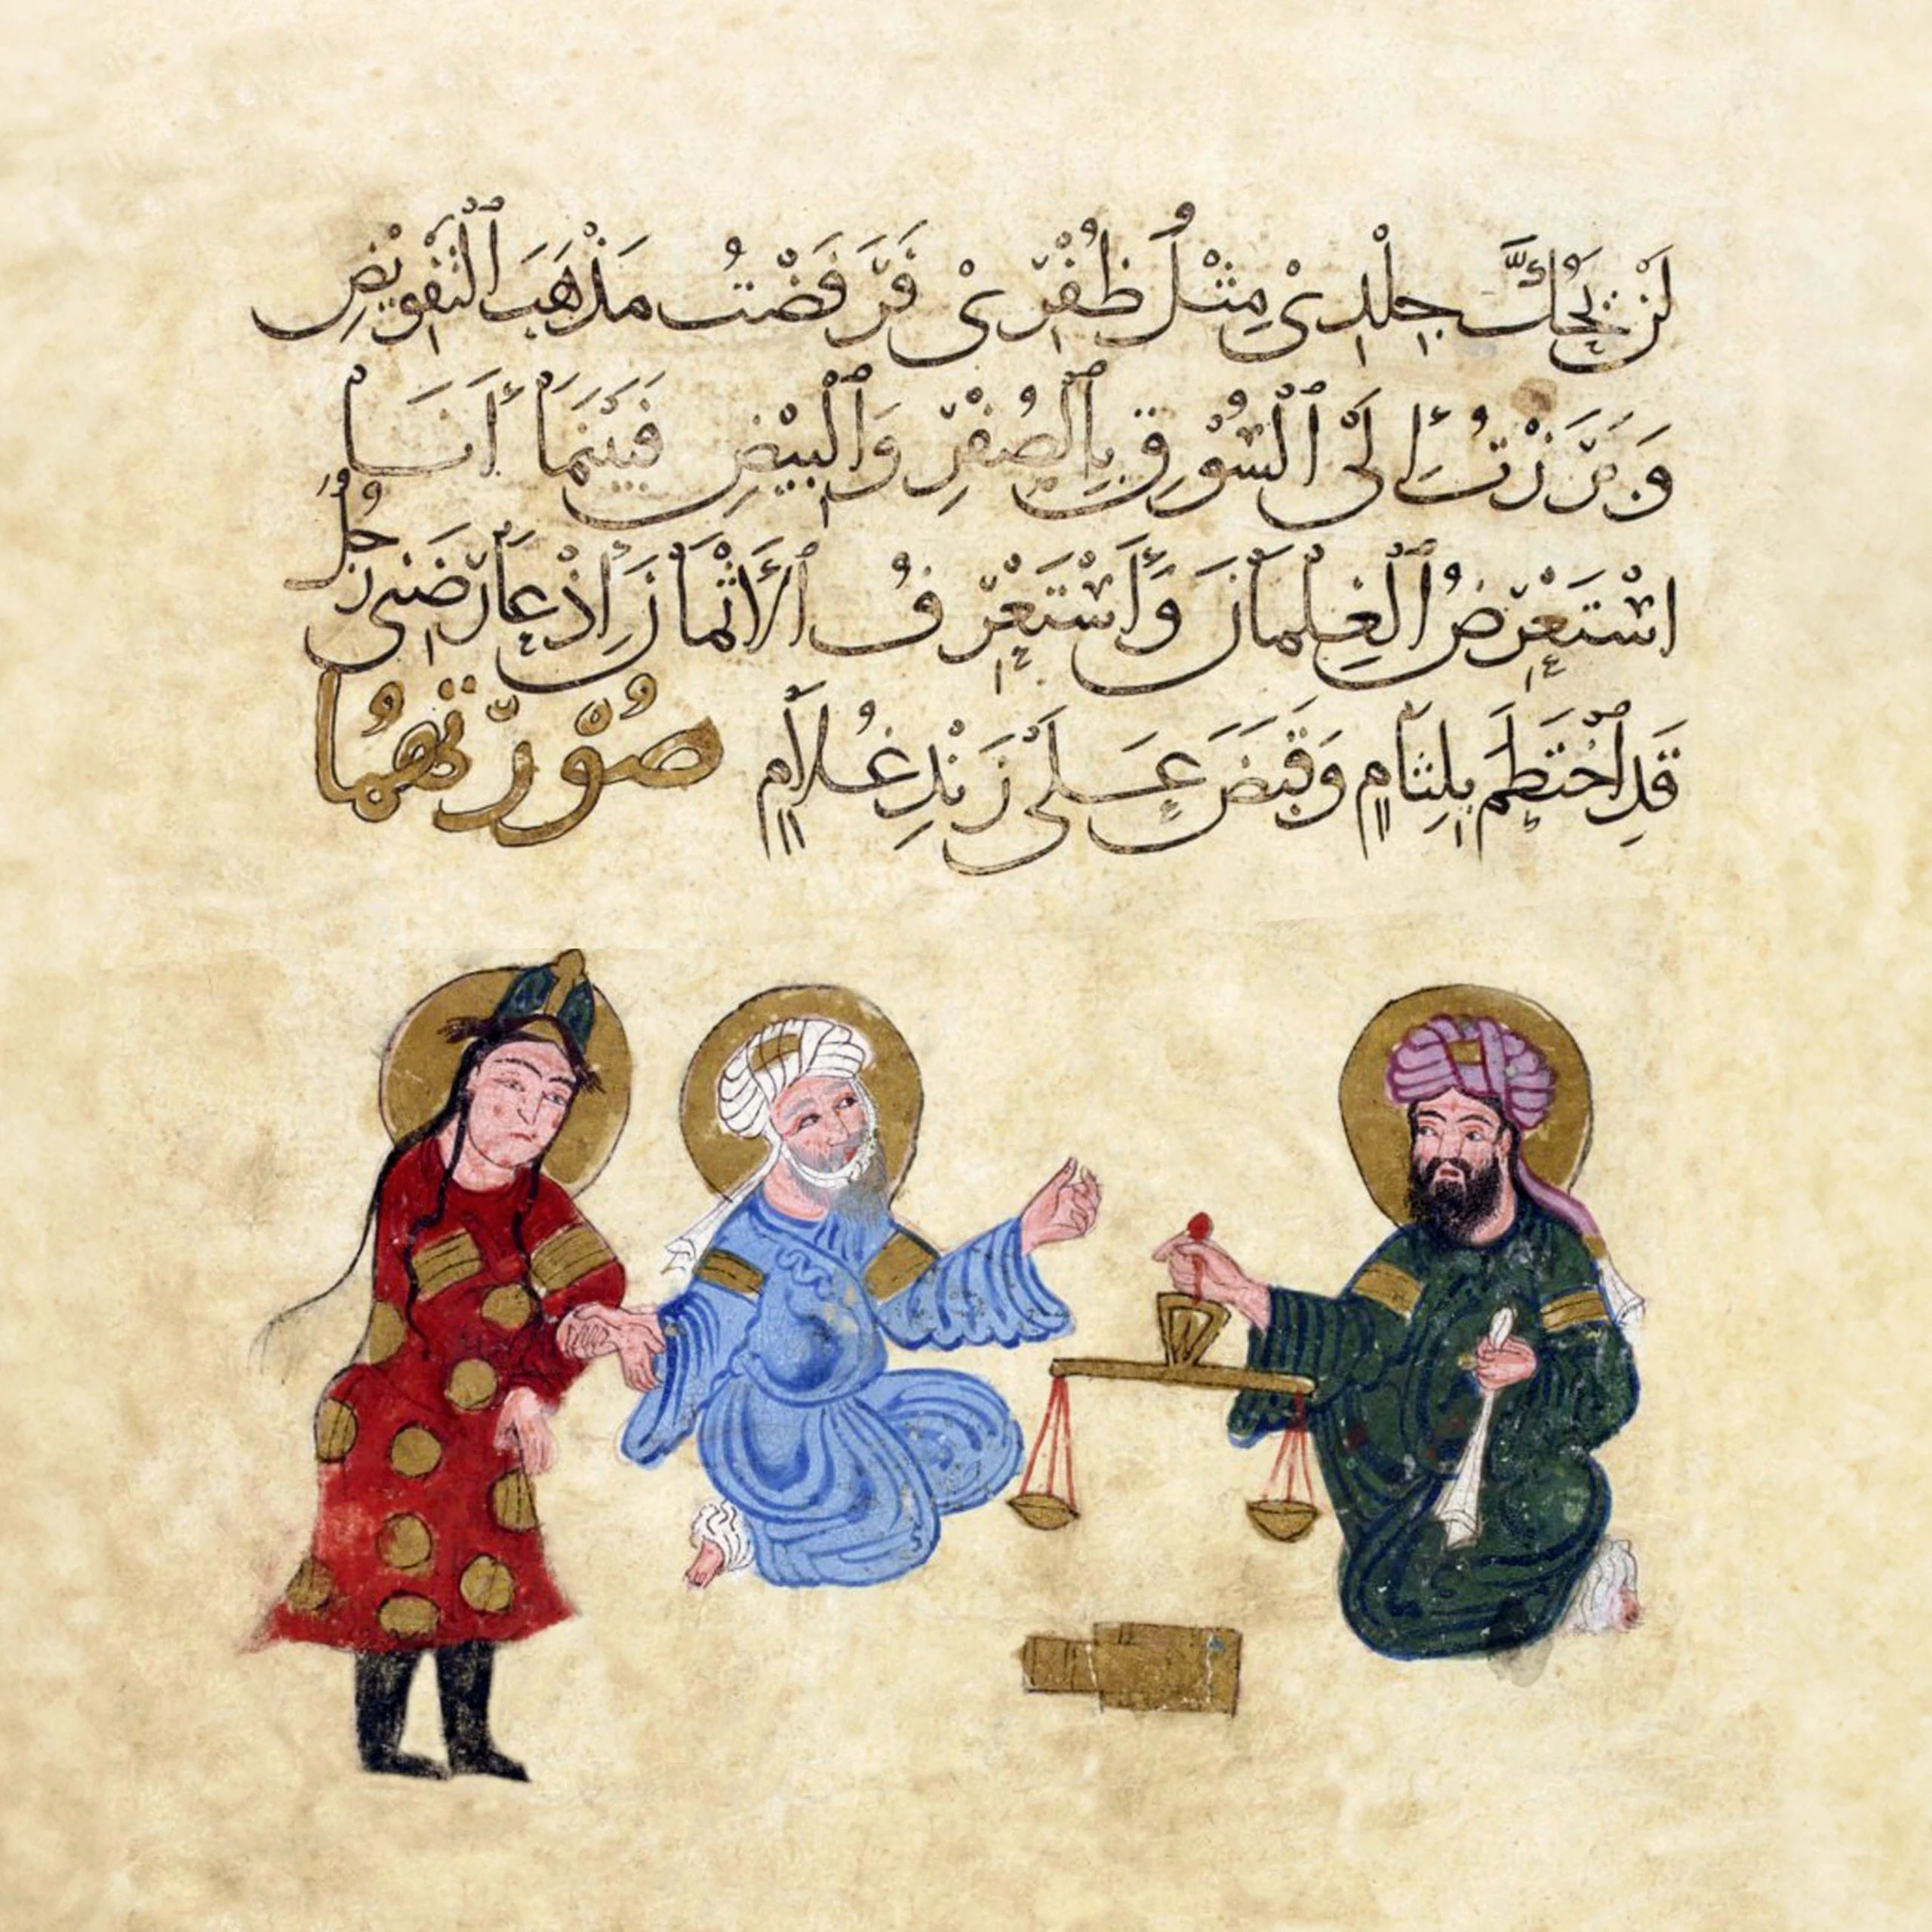 لَنْ يَحُكَّ جِلْدِىْ مِثْلُ ظُفْرِىْ فَرَفَضْتُ مَذْهَبَ ٱلْتَّفْوِيْضِ
وَبَرَزْتُ إِلَى ٱلْسُّوْقِ بِٱلصُفْرِ وَٱلْبِيْضِ فَبَيْنَمَا أَنَا
اسْتَعْرِضُ ٱلْغِلْمَانَ وَأَسْتَعْرِفُ ٱلْأَثْمَانَ إِذْ عَارَضَنِى رَجُلٌ
قَدِ ٱخْتَطَمَ بِلِثَامٍ وَقَبَضَ عَلَى زَنْدِ غُلَامٍ صُوْرَتُهُمَا